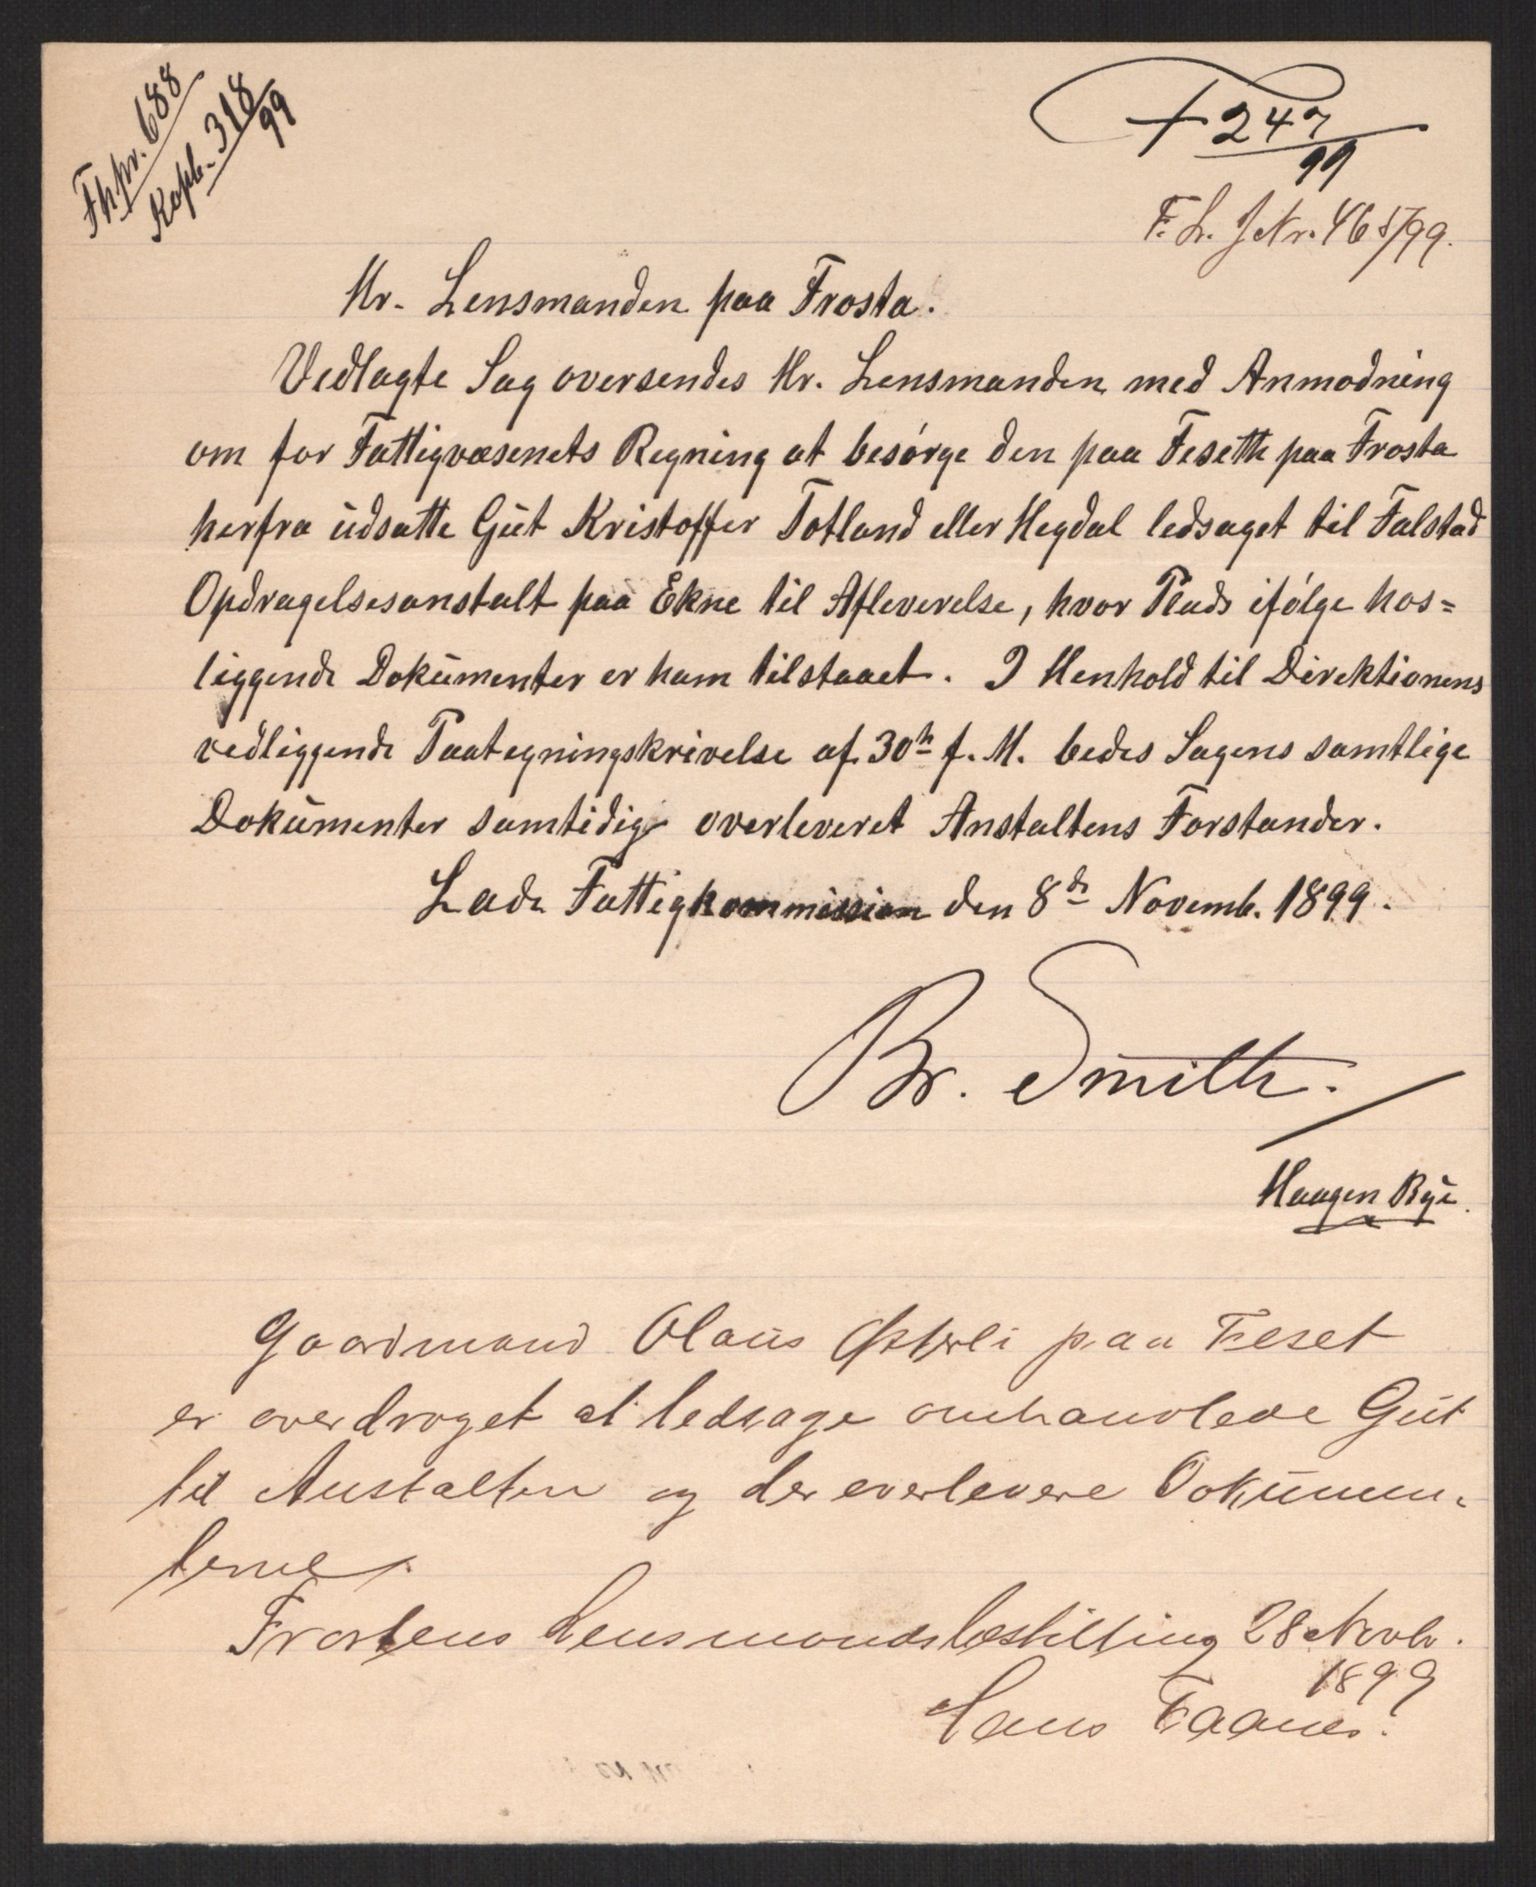 Fhpr. 688
Kopb. 318/99
F 247/99
F. L. JNr. 465/99.
Hr. Lensmanden paa Frosta.
Vedlagte Sag oversendes Hr. Lensmanden med Anmodning
om for Fattigvæsenets Regning at besørge den paa Fesette paa Frosta
herfra udsatte Gut Kristoffer Totland eller Hegdal ledsaget til Falstad
Opdragelsesanstalt paa Ekne til Afleverelse, hvor Plads ifølge hos=
liggende Dokumenter er ham tilstaaet. I Henhold til Direktionens
vedliggende Paategningskrivelse af 30te f. M. bedes Sagens samtlige
Dokumenter samtidig overleveret Anstaltens Forstander.
Lade Fattigkommission den 8de Novemb. 1899.
Br. Smith.
Haagen Rye.
Gaardmand Olaus Østerli paa Feset
er overdraget at ledsage omhandlede Gut
til Anstalten og der overlevere Dokumen-
terne.
Frostens Lensmandsbestilling 28 Novbr.
1899
Hans Faanes.